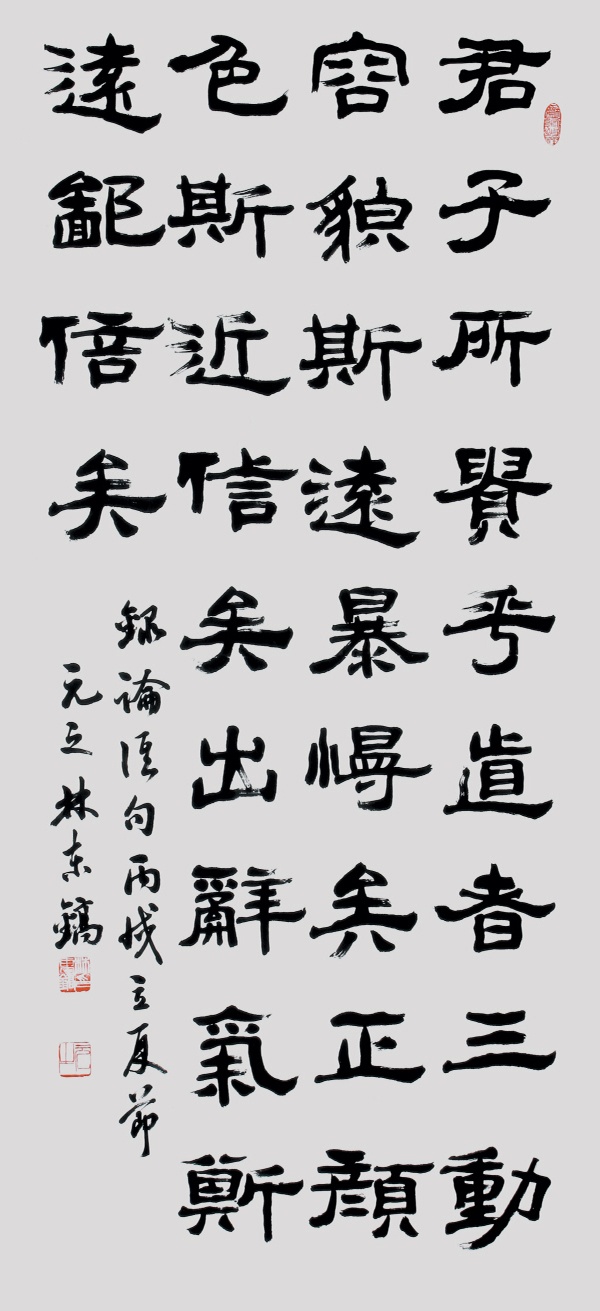 君子所貴乎道者三動
容貌斯遠暴慢矣正顏
色斯近信矣出辭氣斯
遠鄙倍矣
錄論語句丙戌立夏節
元之林東鎬